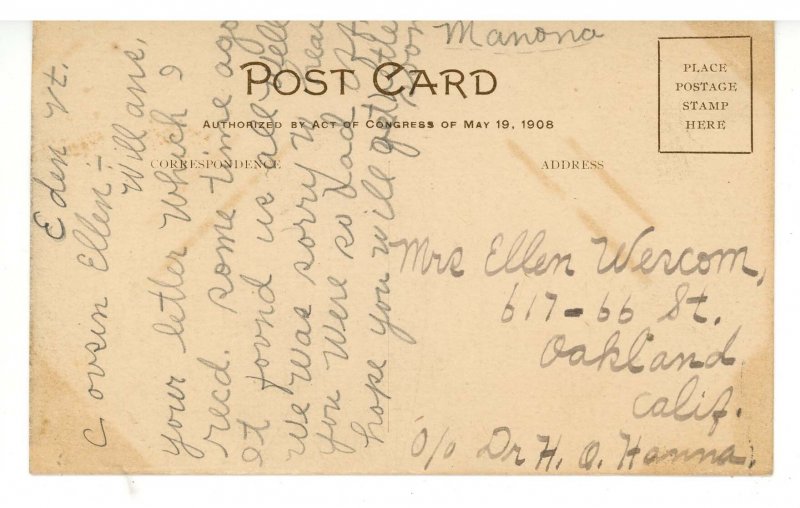 Manona
POST CARD
AUTHORIZED BY ACT OF CONGRESS OF MAY 19, 1908
PLACE
POSTAGE
STAMP
HERE
CORRESPONDENCE
ADDRESS
Eden Vt.
Cousin Ellen:-
Will ans,
your letter which I
recd. some time ago
it found us all well
we was sorry to hear
you were so bad off
hope you will get
soon
Mrs Ellen Wescom,
617-66 St.
Oakland
Calif.
c/o Dr H. O. Hanna.